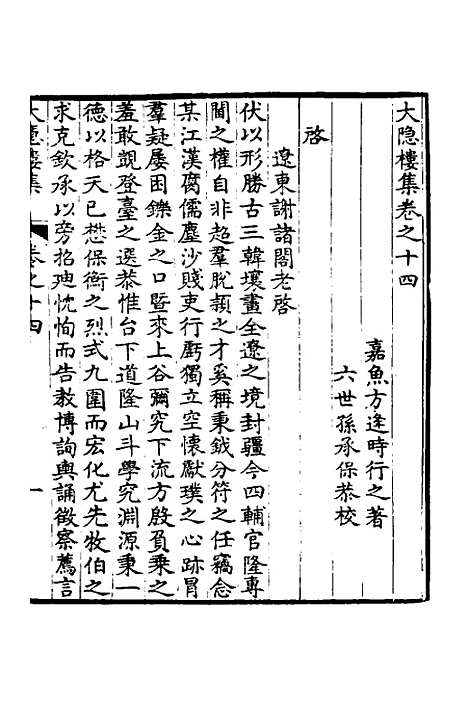 大隐樓集卷之十四
嘉魚方逢時行之著
六世孫承保恭校
啓
遼東謝諸閣老啓
伏以形勝古三韓壤畫全遼之境封疆今四輔官隆專
閫之權自非超羣脫穎之才奚稱秉鉞分符之任竊念
某江漢腐儒塵沙賤吏行虧獨立空懷獻璞之心跡冒
羣疑屡困鑠金之口暨來上谷彌究下流方殷負乘之
羞敢覬登臺之選恭惟台下道隆山斗學究淵源秉一
德以格天已懋保衡之烈式九圍而宏化尤先牧伯之
求克欽承以旁招廸忱恂而告教博詢輿誦徵察薦言
大隱樓集 卷之十四 一